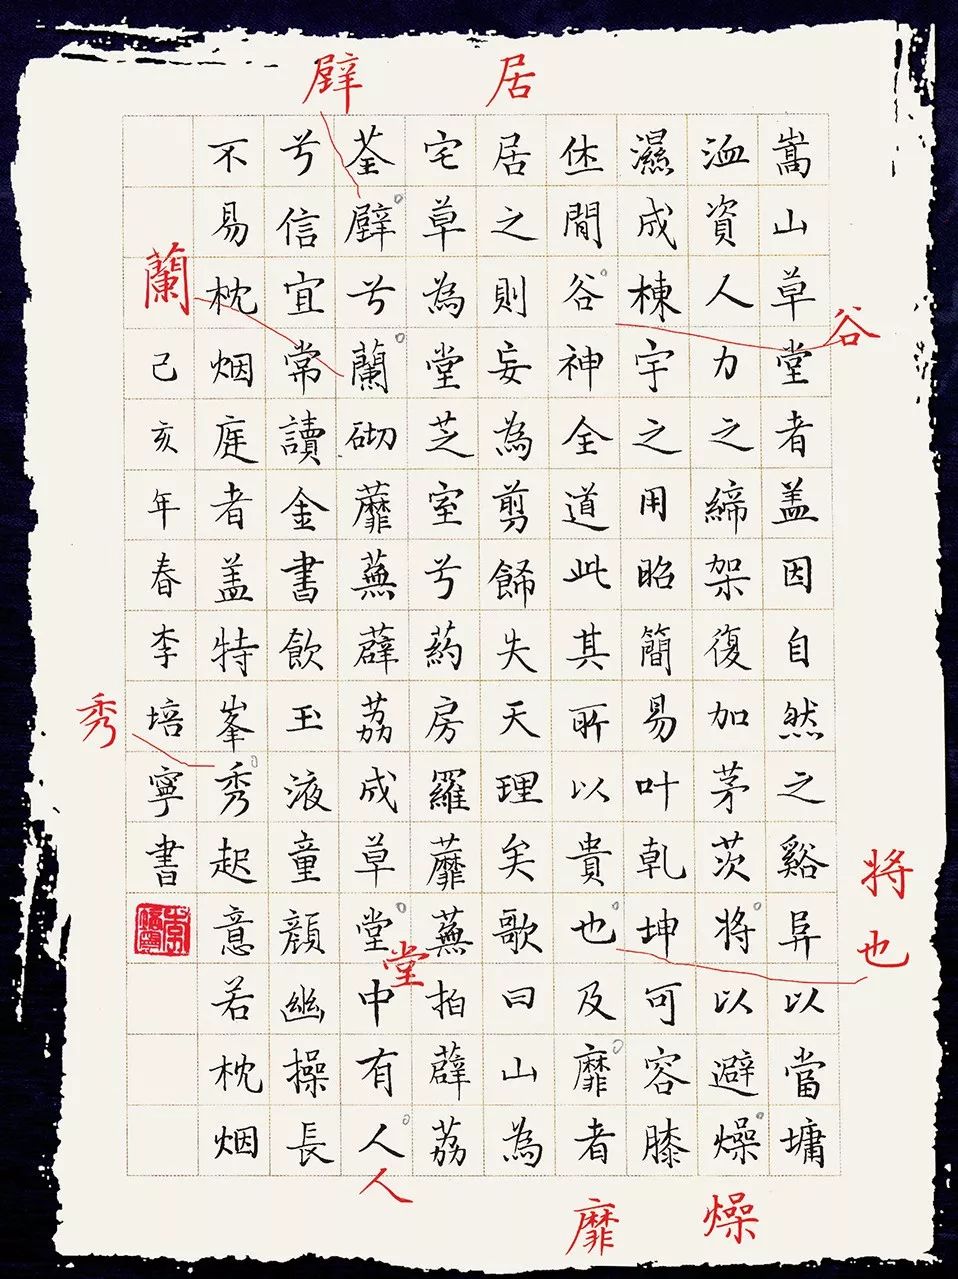 嵩山草堂者盖因自然之谿异以當墉
洫資人力之締架復加茅茨將以避燥
濕成棟宇之用昭簡易叶乾坤可容膝
休間谷神全道此其所以貴也及靡者
居之則妄為剪餙失天理矣歌曰山為
宅草為堂芝室兮葯房羅蘼蕪拍薜荔
荃壁兮蘭砌蘼蕪薜荔成草堂中有人
兮信宜常讀金書飲玉液童顏幽操長
不易枕烟庭者盖特峯秀起意若枕烟
己亥年春李培寧書
居
壁
谷
蘭
秀
將
也
堂
人
燥
靡